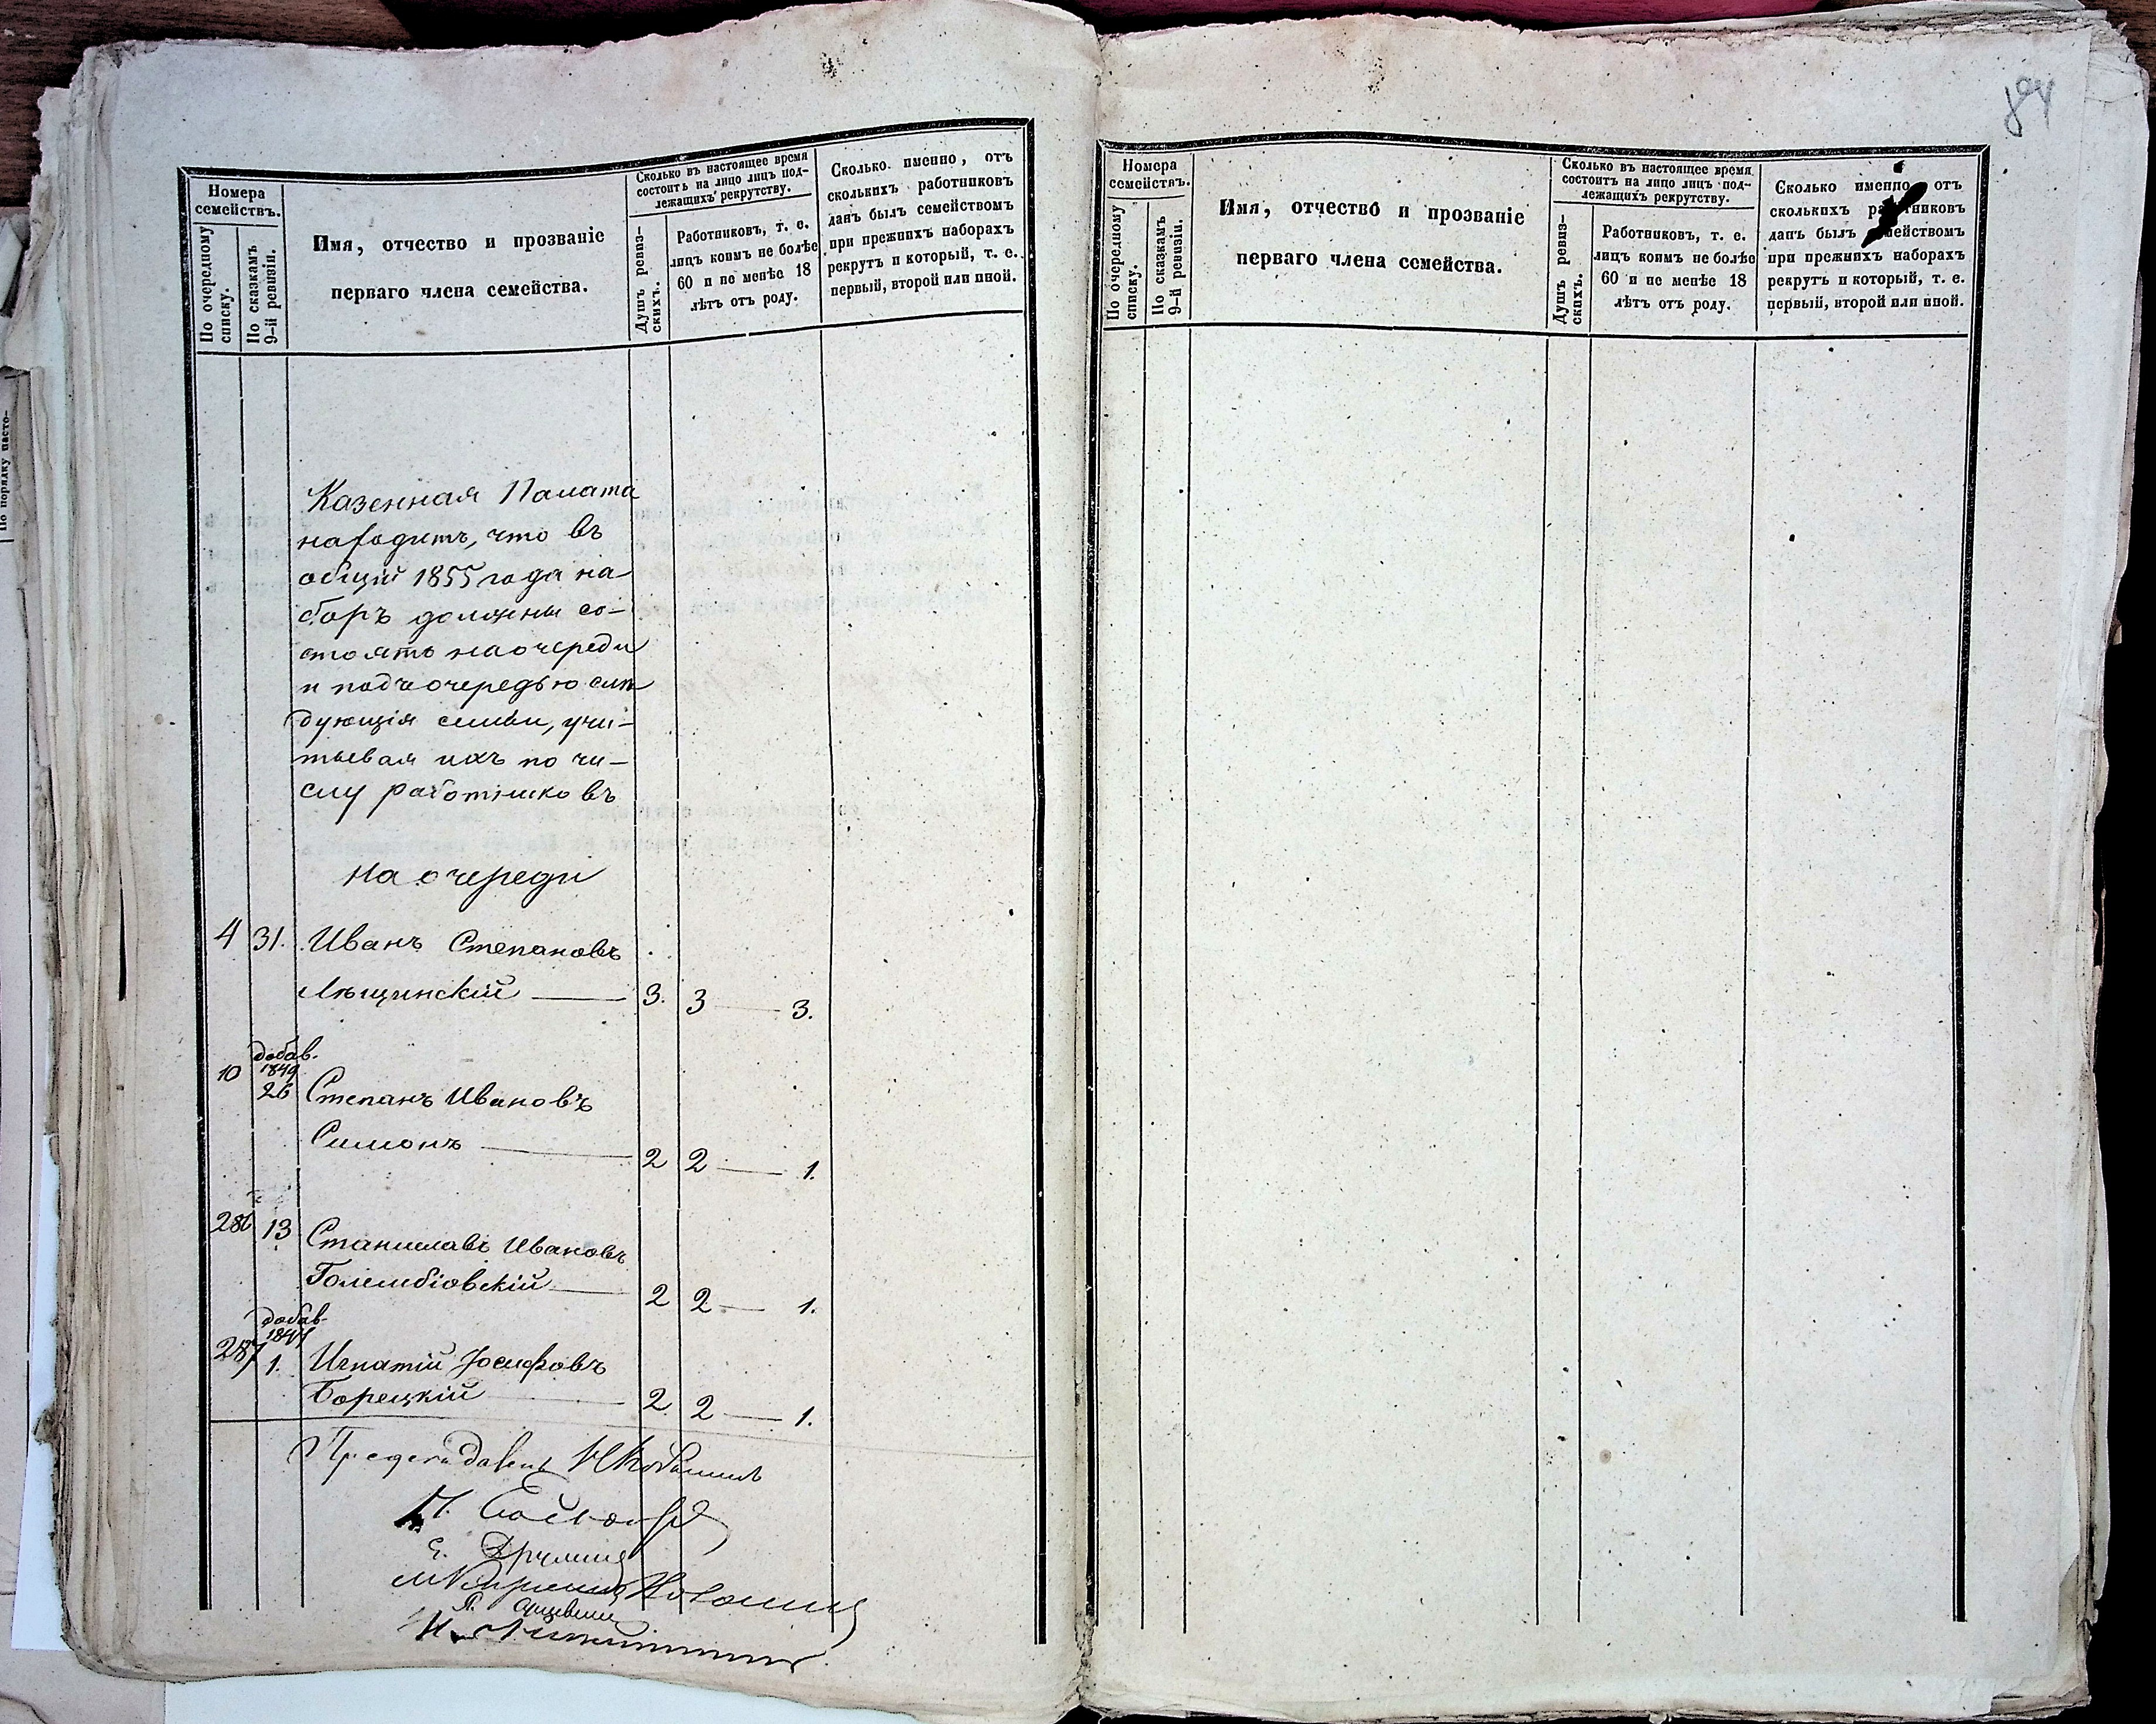 Номера
семействъ.
По очередному
списку.
По сказкамъ
9-й ревизіи.
Имя, отчество и прозваніе
перваго члена семейства.
Сколько въ настоящее время
состоитъ на лицо лицъ под-
лежащихъ рекрутству.
Душъ ревиз-
скихъ.
Работниковъ, т. е.
лицъ коимъ не болѣе
60 и не менѣе 18
лѣтъ отъ роду.
Сколько именно, отъ
сколькихъ работниковъ
данъ былъ семействомъ
при прежнихъ наборахъ
рекрутъ и который, т. е.
первый, второй или иной.
Казенная Палата
находитъ, что въ
общій 1855 года на
боръ должны со-
стоять на очереди
и подъ очередью слѣ
дующія семьи, учи-
тывая ихъ по чи-
слу работниковъ
на очереди
4 31. Иванъ Степановъ
Лѣщинскій — 3. 3 — 3.
добав.
1849
10 26 Степанъ Ивановъ
Симонъ — 2 2 — 1.
286 13 Станиславъ Ивановъ
Голембіовскій — 2 2 — 1.
добав.
287 1. Игнатій Іосифовъ
Борецкій — 2 2 — 1.
84
Номера
семействъ.
По очередному
списку.
По сказкамъ
9-й ревизіи.
Имя, отчество и прозваніе
перваго члена семейства.
Сколько въ настоящее время
состоитъ на лицо лицъ под-
лежащихъ рекрутству.
Душъ ревиз-
скихъ.
Работниковъ, т. е.
лицъ коимъ не болѣе
60 и не менѣе 18
лѣтъ отъ роду.
Сколько именно отъ
сколькихъ работниковъ
данъ былъ семействомъ
при прежнихъ наборахъ
рекрутъ и который, т. е.
первый, второй или иной.